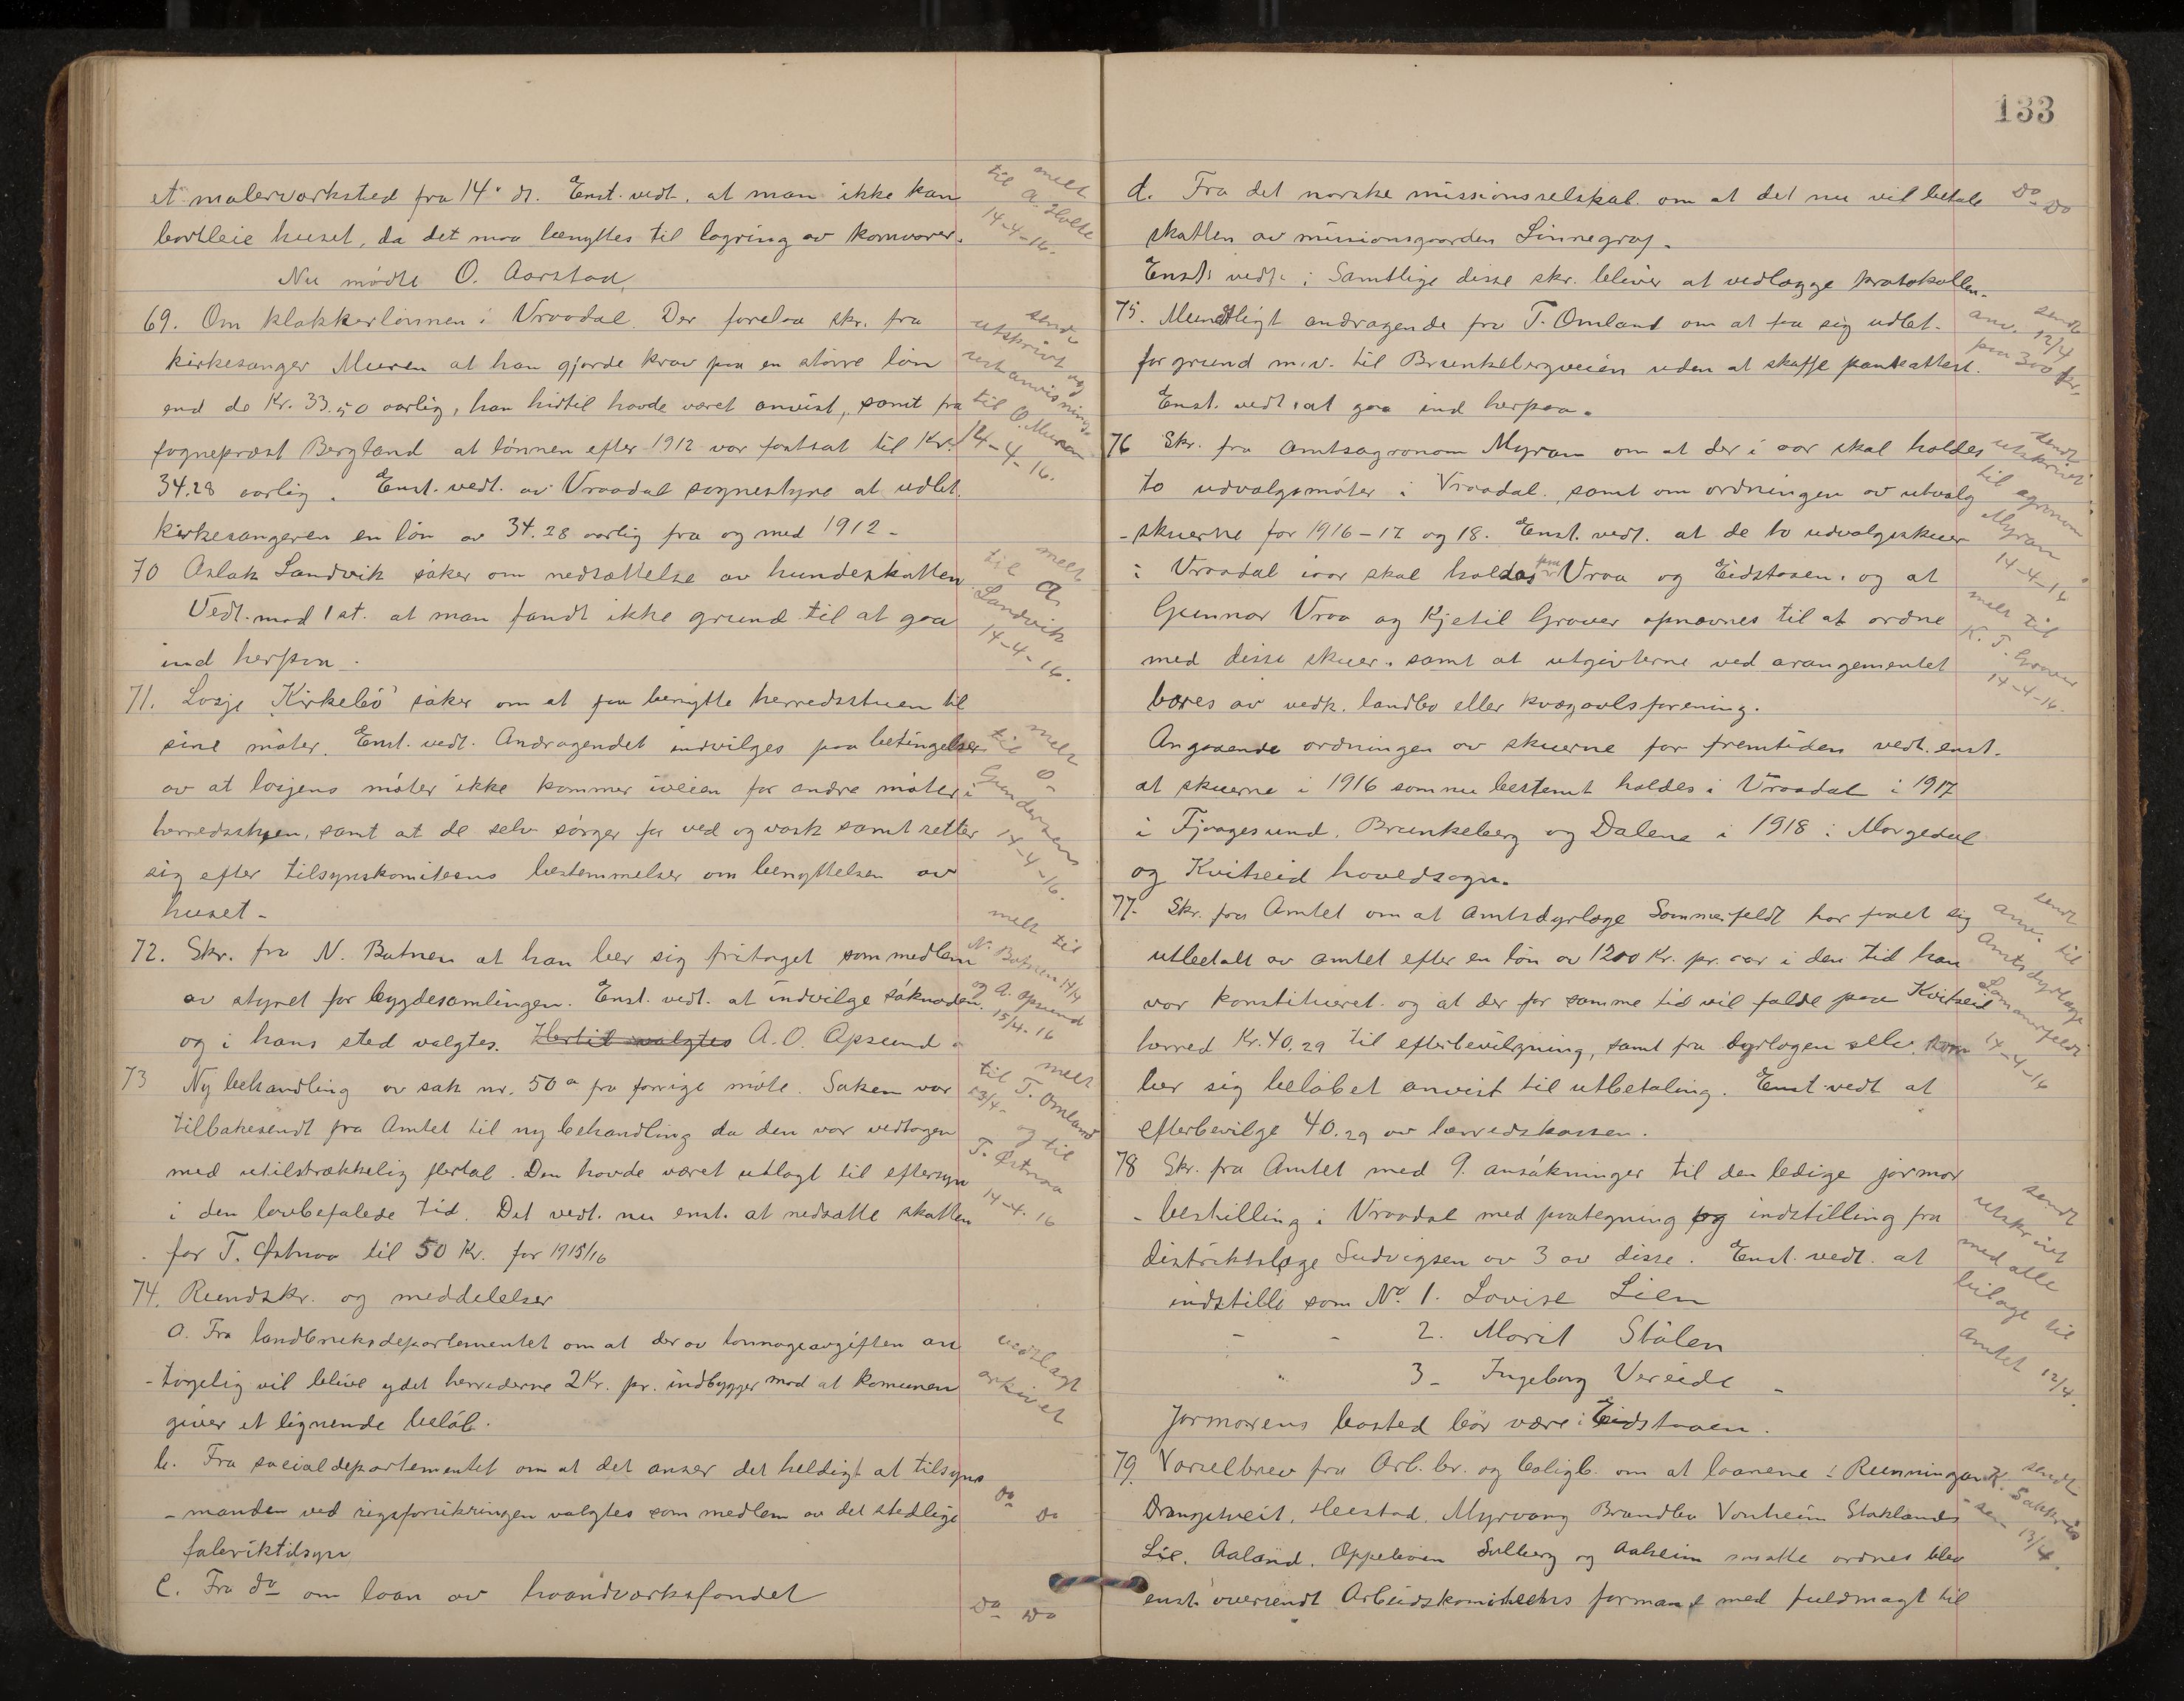 et malerværksted fra 14' ds. Enst. vedt. at man ikke kan
bortleie huset, da det maa benyttes til lagring av kornvarer.
Nu mødte O. Aarstad.
69. Om klokkerlønnen i Vraadal. Der forelaa skr. fra
kirkesanger Muren at han gjorde krav paa en større løn
end de Kr. 33.50 aarlig, han hidtil havde været anvist, samt fra
sogneprest Bergland at lønnen efter 1912 var fastsat til Kr.
34.28 aarlig. Enst. vedt. av Vraadal sognestyre at udbet.
kirkesangeren en løn av 34.28 aarlig fra og med 1912 -
70 Aslak Sandvik søker om nedsættelse av hundeskatten.
Vedt. mod 1 st. at man fandt ikke grund til at gaa
ind herpaa.
71. Losje "Kirkebø" søker om at faa benytte herredsstuen til
sine møter. Enst. vedt. Andragendet indvilges paa betingelse
av at losjens møter ikke kommer iveien for andre møter i
herredsstuen, samt at de selv sørger for ved og vask samt retter
sig efter tilsynskomiteens bestemmelser om benyttelsen av
huset -
72. Skr. fra N. Batnen at han ber sig fritaget som medlem
av styret for bygdesamlingen. Enst. vedt. at indvilge søknaden.
og i hans sted valgtes. Hertil valgtes A. O. Apsund.
73 Ny behandling av sak nr. 50 a fra forrige møte. Saken var
tilbakesendt fra Amtet til ny behandling da den var vedtagen
med utilstrækkelig flertal. Den havde været utlagt til eftersyn
i den lovbefalede tid. Det vedt. nu enst. at nedsætte skatten
for T. Østraa til 50 Kr. for 1915/16
74. Rundskr. og meddelelser
a. Fra landbruksdepartementet om at der av tonnageavgiften an
- tagelig vil blive ydet herrederne 2 Kr. pr. indbygger mod at komunen
giver et lignende beløb.
b. Fra socialdepartementet om at det anser det heldigt at tilsyns
- manden ved rigsforsikringen valgtes som medlem av det stedlige
fabriktilsyn
c. Fra do om laan av haandverksfondet
melt
til A. Holte
14-4-16.
sendt
utskrivt og
restanvisning
til O. Muren
14-4-16.
melt
til A.
Sandvik
14-4-16.
melt
til O.
Gundersen
14-4-16.
melt til
N. Batnen 14/4
og A. Opsund
15/4-16
melt
til T. Omland
13/4-
og til
T. Østraa
14-4-16
vedlagt
arkivet
do do
do do
133
d. Fra det norske missionsselskab. om at det nu vil betale
skatten av missionsgaarden Linnegrav.
Enst. vedt.: Samtlige disse skr. bliver at vedlægge protokollen.
75. Mundtligt andragende fra T. Omland om at faa sig udbet.
for grund m.v. til Brunkebergveien uden at skaffe panteattest.
Enst. vedt. at gaa ind herpaa.
76 Skr. fra Amtsagronom Myran om at der i aar skal holdes
to udvalgsmøter i Vraadal, samt om ordningen av utvalg
- skuerne for 1916-17 og 18. Enst. vedt. at de to udvalgsskuer
i Vraadal iaar skal holdes paa Vraa og Eidstaaen. og at
Gunnar Vraa og Kjetil Graver opnævnes til at ordne
med disse skuer. samt at utgivterne ved arangementet
bæres av vedk. landbo eller kvægavlsforening.
Angaaende ordningen av skuerne for fremtiden vedt. enst.
at skuerne i 1916 som nu bestemt holdes i Vraadal i 1917
i Fjaagesund, Brunkeberg og Dalene i 1918 i Morgedal
og Kvitseid hovedsogn.
77. Skr. fra Amtet om at Amtsdyrlæge Sommerfeldt har faaet sig
utbetalt av amtet efter en løn av 1200 Kr. pr. aar i den tid han
var konstitueret og at der for samme tid vil falde paa Kvitseid
herred Kr. 40.29 til efterbevilgning, samt fra dyrlægen selv som
ber sig beløbet anvist til utbetaling. Enst. vedt. at
efterbevilge 40.29 av herredskassen.
78 Skr. fra Amtet med 9. ansøkninger til den ledige jormor
- bestilling i Vraadal med paategning og indstilling fra
distriktslæge Ludvigsen av 3 av disse. Enst. vedt. at
indstille som No. 1. Lovise Lien
- - 2. Marit Stålen
3 - Ingeborg Vereide -
Jormorens bosted bør være i Eidstaaen.
79. Varselbrev fra Arb. br. og boligb. om at laanene i Runningen
Drangstveit, Heestad, Myrvang Brandbu Vonheim Staklands
Lie, Aaland, Oppebøen Solberg og Aaheim maatte ordnes blev
enst. oversendt Arbeidskomiteens formand med fuldmagt til
do do
sendt
anv. 12/4
paa 300 kr.
sendt
utskrivt
til agronom
Myran
14-4-16
melt til
K. T. Graver
14-4-16.
sendt
anv. til
Amtsdyrlæge
Sommerfeldt
14-4-16
sendt
utskrivt
med alle
bilage til
Amtet 12/4.
sendt
K. Sakkris
- sen 13/4.